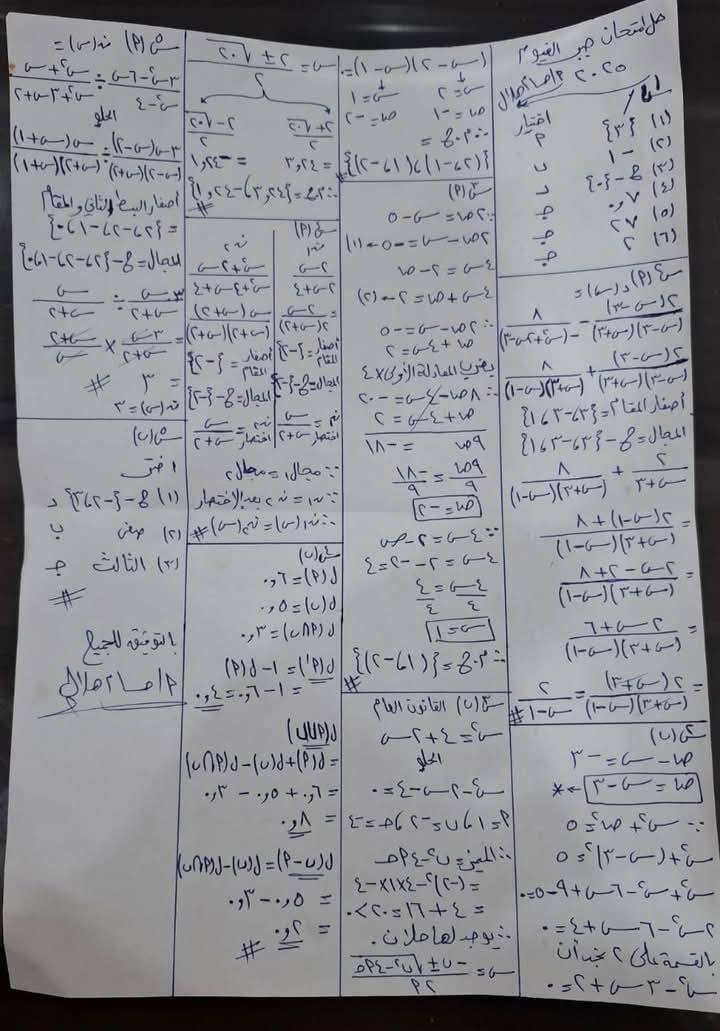 حل امتحان جبر الفيوم
٢٠٢٠ م/رضا هلال
س١/ اختيار
(١) {٣} م
(٢) -١ د
(٣) ح-{٠} د
(٤) ٠,٧ ج
(٥) ٢٧ ج
(٦) ٢ ج
س٢ (٢) د(س)=
٢(س-٣)/(س-٣)(س+٣) - ٨/-(س٢+٢س-٣)
٢(س-٣)/(س-٣)(س+٣) + ٨/(س+٣)(س-١)
أصفار المقام={٣،-٣،١}
المجال=ح-{٣،-٣،١}
٢/س+٣ + ٨/(س+٣)(س-١)
= ٢(س-١)+٨/(س+٣)(س-١)
= ٢س-٢+٨/(س+٣)(س-١)
= ٢س+٦/(س+٣)(س-١)
= ٢(س+٣)/(س+٣)(س-١) = ٢/س-١ #
س٢(ب)
ص-س=-٣
ص=س-٣ ←*
∵ س٢+ص٢=٥
س٢+(س-٣)٢=٥
س٢+س٢-٦س+٩-٥=٠
٢س٢-٦س+٤=٠
بالقسمة على ٢ نجد أن
س٢-٣س+٢=٠
(س-٢)(س-١)=٠
س=٢ س=١
ص=-١ ص=-٢
∴ م.ح =
{(٢،-١)،(١،-٢)} #
س٣(٢)
∵ ٢ص=س-٥
٢ص-س=-٥ ←(١)
٤س=٢-ص
٤س+ص=٢ ←(٢)
∴ ٢ص-س=-٥
ص+٤س=٢
بضرب المعادلة الأولى×٤
٨ص-٤س=-٢٠
ص+٤س=٢
٩ص =-١٨
٩ص/٩ = -١٨/٩
ص=-٢
∵ ٤س=٢-ص
٤س=٢--٢=٤
٤س/٤ = ٤/٤
س=١
∴ م.ح={(١،-٢)} #
س٣(ب) القانون العام
س٢=٤+٢س
الحل
س٢-٢س-٤=٠
٢=١،ب=-٢،ح=-٤
∴ المميز=ب٢-٤٢ح
=(-٢)٢-٤×١×-٤
=٤+١٦=٢٠>٠
∴ يوجد لها حلان.
س= -ب±√ب٢-٤٢ح/٢٢
س= ٢±√٢٠/٢
٢+√٢٠/٢ ٢-√٢٠/٢
=٣,٢٤ =-١,٢٤
∴ م.ح={٣,٢٤،-١,٢٤} #
س٤(٢)
ن١ ن٢
٢س/٢س+٤ س٢+٢س/س٢+٤س+٤
٢س/٢(س+٢) س(س+٢)/(س+٢)(س+٢)
أصفار المقام={-٢} أصفار المقام={-٢}
المجال=ح-{-٢} المجال=ح-{-٢}
ن١ اختصار=س/س+٢ ن٢ اختصار=س/س+٢
∵ مجال١=مجال٢
∵ ن١=ن٢ بعد الاختصار
∴ ن١(س)=ن٢(س) #
س٤(ب)
ل(٢)=٠,٦
ل(ب)=٠,٥
ل(٢∩ب)=٠,٣
ل(٢')=١-ل(٢)
=١-٠,٦=٠,٤
ل(٢∪ب)
=ل(٢)+ل(ب)-ل(٢∩ب)
=٠,٦+٠,٥-٠,٣
=٠,٨
ل(ب-٢)=ل(ب)-ل(٢∩ب)
=٠,٥-٠,٣
=٠,٢
#
س٥(٢) ن(س)=
٣س٢-٦س/س٢-٤ ÷ س٢+س/س٢+٣س+٢
الحل
٣س(س-٢)/(س-٢)(س+٢) ÷ س(س+١)/(س+٢)(س+١)
أصفار البسط الثاني والمقام
={٢،-٢،-١،٠}
المجال=ح-{٢،-٢،-١،٠}
٣س/س+٢ ÷ س/س+٢
= ٣س/س+٢ × س+٢/س
=٣ #
ن(س)=٣
س٥(ب)
اختر
(١) ح-{-٢،٣} د
(٢) صفر ب
(٣) الثالث ج
#
بالتوفيق للجميع
م/رضا هلال